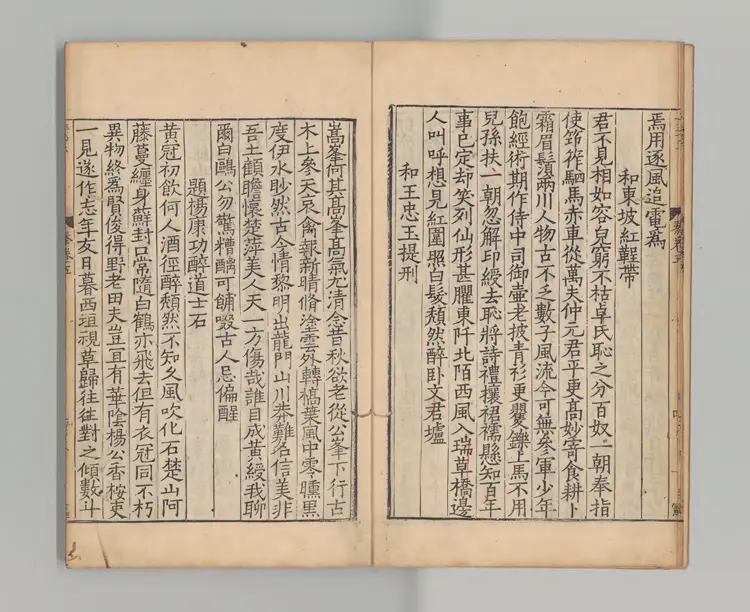 焉用逐風追電爲
和東坡紅鞓帶
君不見相如容皃窮不枯卓氏恥之分百奴一朝奉指
使筰䇥駟馬赤車從萬夫仲元君平更高妙寄食耕卜
霜眉鬚兩川人物古不乏數子風流今可無參軍少年
飽經術期作侍中司御壺老披青衫更矍鑠上馬不用
兒孫扶一朝忽解印綬去恥將詩禮攘裙襦懸知百年
事已定却笑列仙形甚臞東阡北陌西風入瑞草橋邊
人叫呼想見紅圍照白髮頹然醉卧文君壚
和王忠玉提刑
嵩峯何其高峯高氣九清念昔秋欲老從公峯下行古
木上參天哀禽報新晴脩塗雲外轉槁葉風中零曛黑
度伊水眇然古今情黎明出龍門山川莽難名信美非
吾土顧瞻懷楚萍美人天一方傷哉誰目成黃綬我聊
爾白鷗公勿驚糟醨可餔啜古人忌偏醒
題楊康功醉道士石
黃冠初飲何人酒徑醉頹然不知久風吹化石楚山阿
藤蔓纏身蘚封口常隨白鶴亦飛去但有衣冠同不朽
異物終爲賢俊得野老田夫豈宜有華陰楊公香桉吏
一見遂作忘年友日暮西垣視草歸往往對之傾數斗